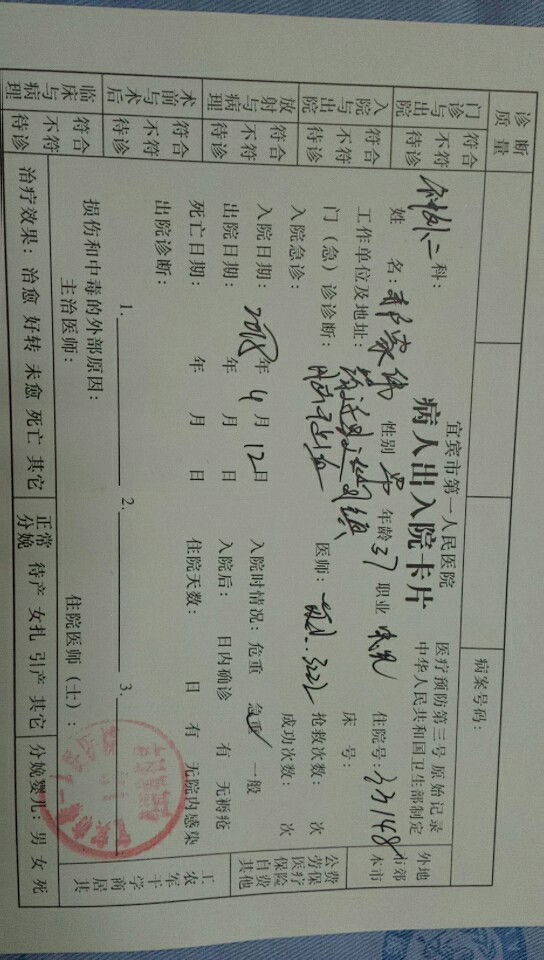 诊断质量
病案号码:
宜宾市第一人民医院
病人出入院卡片
医疗预防第三号 原始记录
中华人民共和国卫生部制定
神外二科:
姓 名: 郑家伟 性别 男 年龄 37 职业 住院号: 33148
工作单位及地址: 镇
床 号:
门(急)诊诊断: 脑出血 医师: 3222 抢救次数: 次
入院急诊: 成功次数: 次
入院日期: 2018年 4月 12日 入院时情况: 危重 急重 一般
出院日期: 年 月 日 入院后: 日内确诊 有 无褥疮
死亡日期: 年 月 日 住院天数: 日 有 无院内感染
出院诊断:
1. 2. 3.
损伤和中毒的外部原因:
主治医师: 住院医师(士):
治疗效果: 治愈 好转 未愈 死亡 其它
正常分娩 待产 女扎 引产 其它
分娩婴儿: 男 女 死
门诊与出院 符合 不符 待诊
入院与出院 符合 不符 待诊
放射与病理 符合 不符 待诊
术前与术后 符合 不符 待诊
临床与病理 符合 不符 待诊
外地 市郊 本市
公费 劳保 医疗 保险 自费 其他
工农军干学商居其